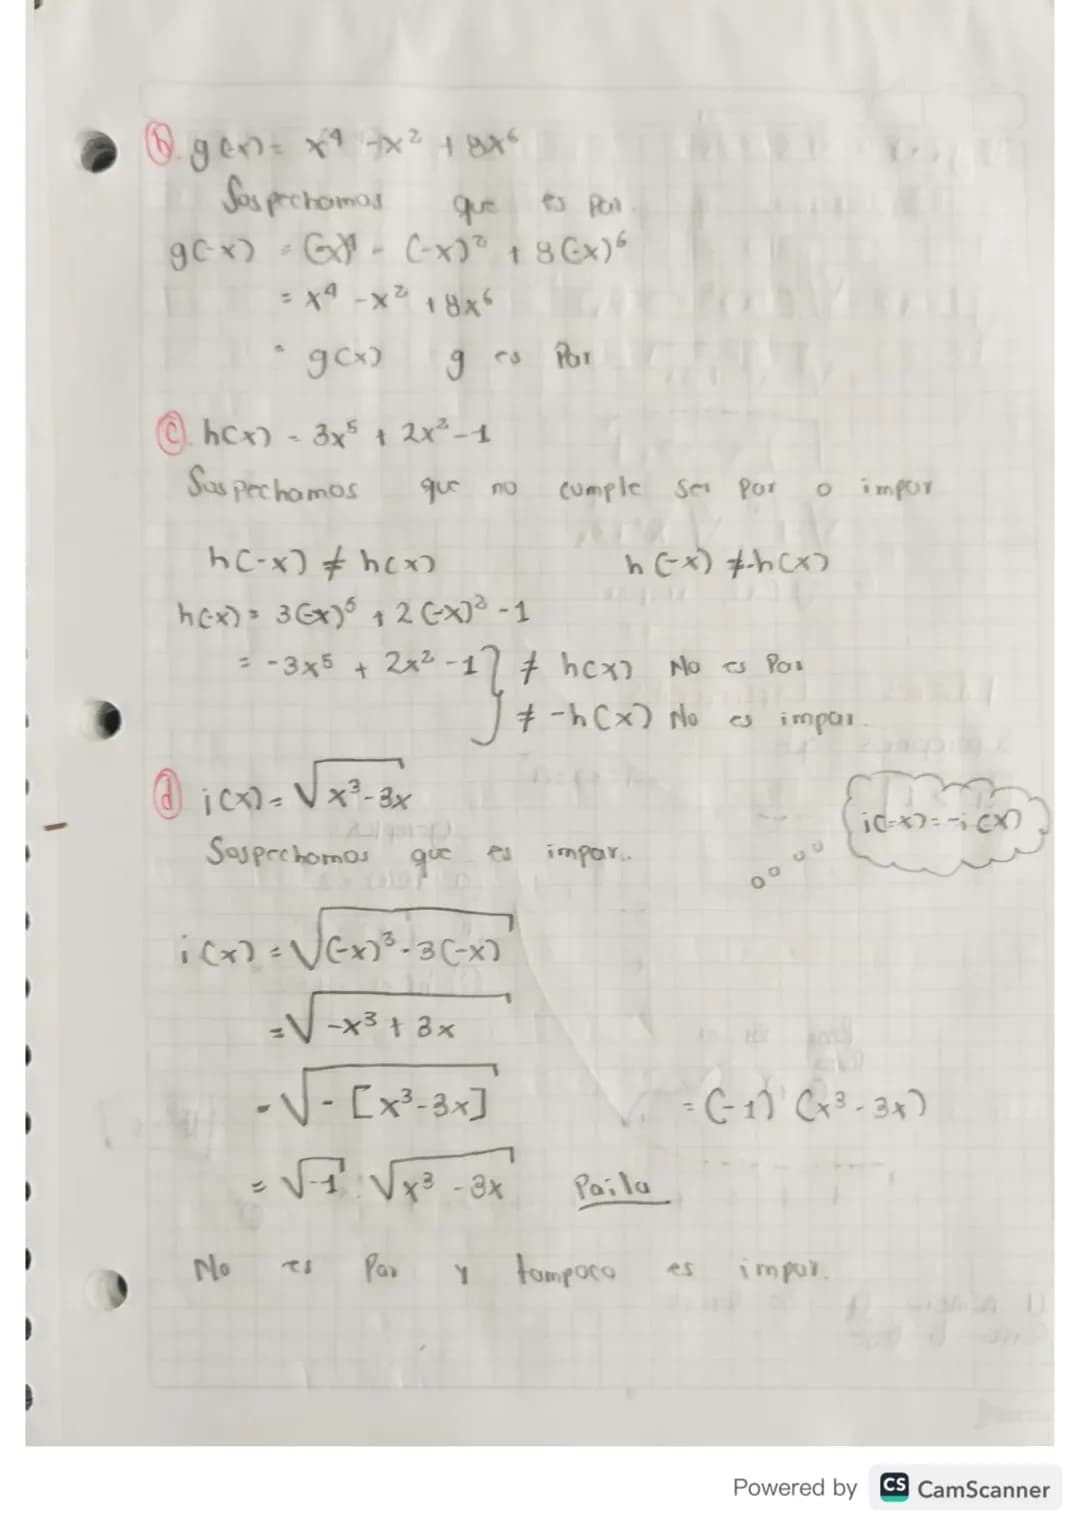 b. g(x) = x⁴ - x² + 8x⁶
Sospechamos que es Par.
g(-x) = (-x)⁴ - (-x)² + 8(-x)⁶
= x⁴ - x² + 8x⁶
= g(x) g es Par
c. h(x) = 3x⁵ + 2x² - 1
Sospechamos que no cumple ser Par o impar
h(-x) ≠ h(x) h(-x) ≠ -h(x)
h(-x) = 3(-x)⁵ + 2(-x)² - 1
= -3x⁵ + 2x² - 1 } ≠ h(x) No es Par
≠ -h(x) No es impar.
d i(x) = √x³-3x
i(-x) = -i(x)
Sospechamos que es impar..
i(x) = √(-x)³ - 3(-x)
= √-x³ + 3x
= √-[x³-3x] = (-1)(x³-3x)
= √-1 · √x³-3x Paila
No es Par y tampoco es impar.
Powered by CS CamScanner